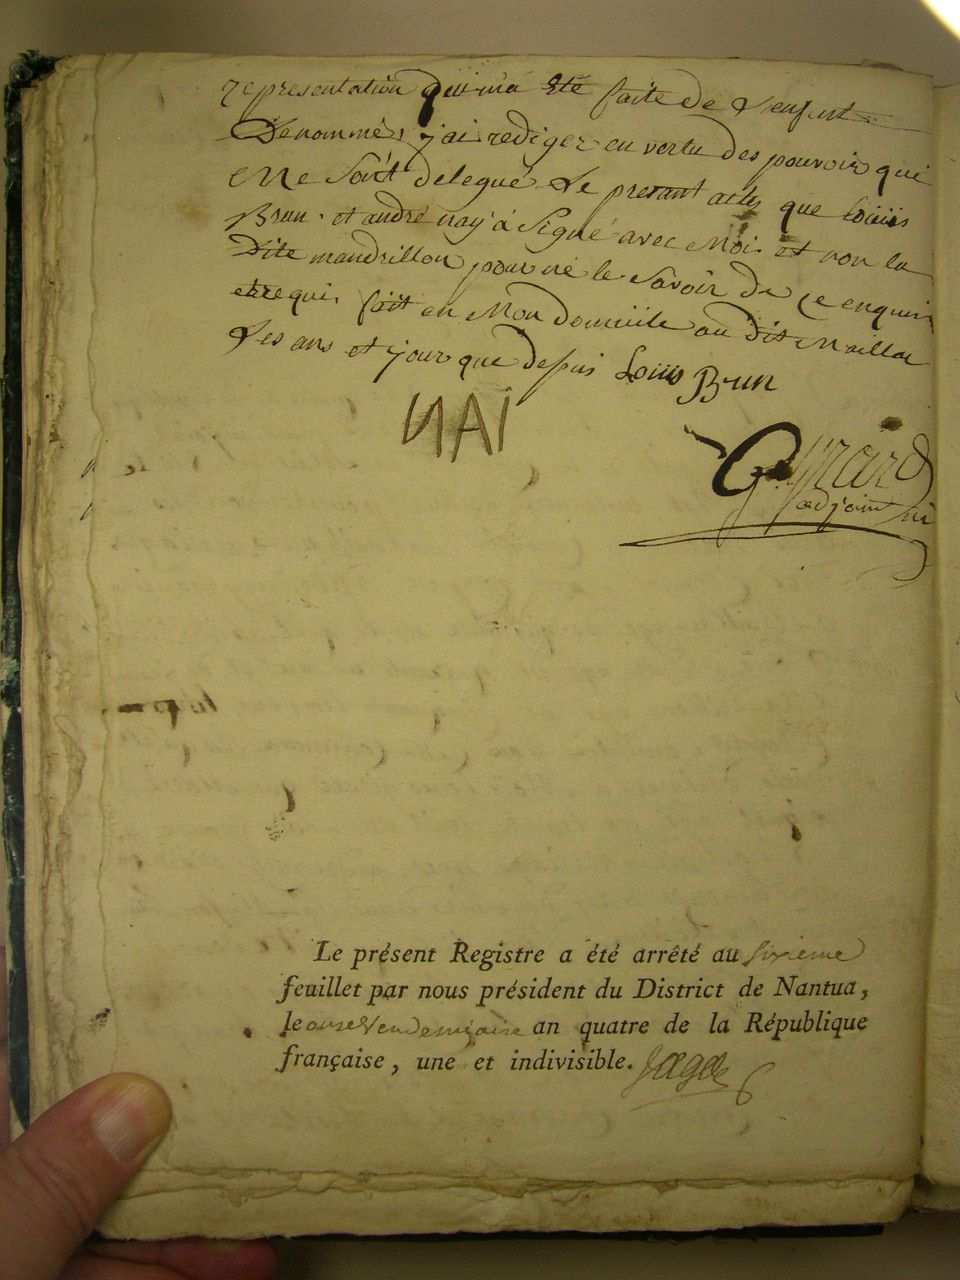 representation qui m'a eté faite de L'enfant
Denommé, j'ai rediger en vertu des pouvoir qui
Me Sont delegué Le presant acte que Louis
Brun et andré nay à Signé avec Moi et non la
Dite mandrillon pour ne le Savoir De ce enquis
et requi, fait en Mon Domicile au Dit Maillat
Les ans et jour que depuis Louis Brun
NAI
Girard
adjoint
Le présent Registre a été arrêté au Sixieme
feuillet par nous président du District de Nantua,
le onze Vendemiaire an quatre de la République
française, une et indivisible.